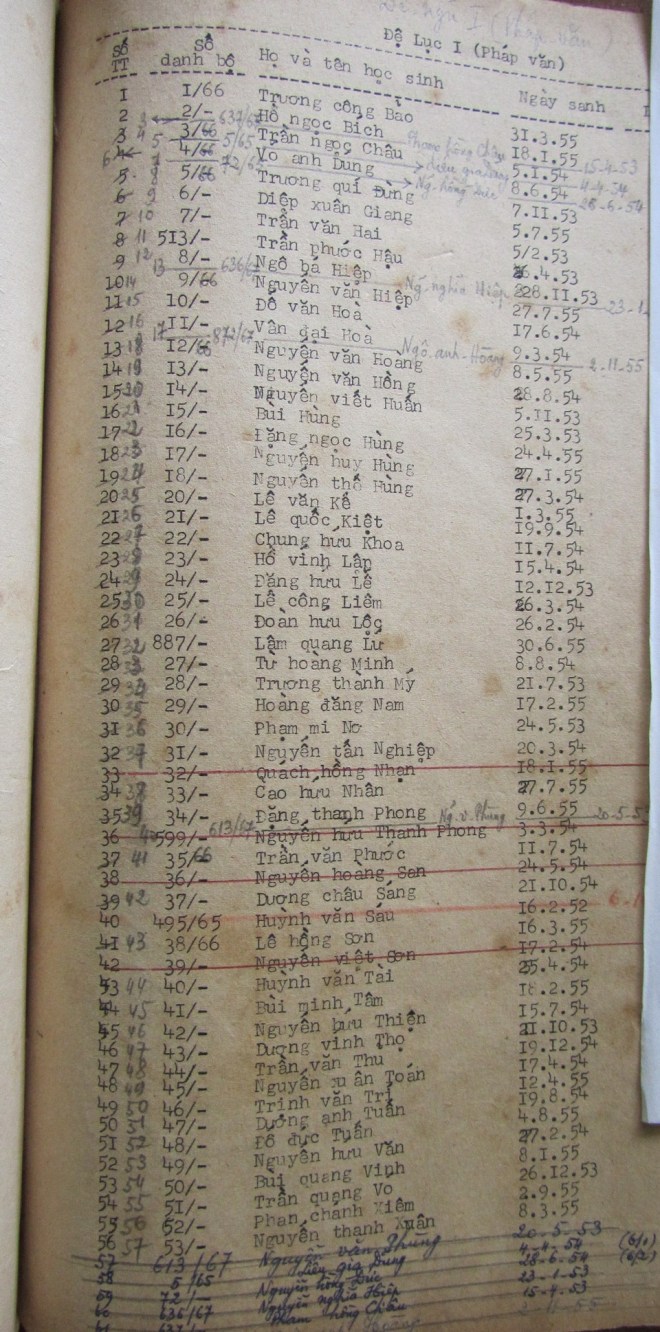 Đệ Lục I (Pháp văn)
Số TT Số danh bộ Họ và tên học sinh Ngày sanh
I I/66 Trương công Bảo 3I.3.55
2 2/- 637/67 Hồ ngọc Bích Phạm hồng Châu I8.I.55 15-4-53
3 4 3/66 5/65 Trần ngọc Châu 5.I.54
4 5 4/66 72/65 Vo anh Dung Liêu gia Dung 8.6.54 4-4-54
5 8 5/66 Trương quí Đùng Ng. hồng Đức 7.II.53 28-6-54
6 9 6/- Diệp xuân Giang 5.7.55
7 10 7/- Trần văn Hai 5/2.53
8 11 5I3/- Trần phước Hậu 6.4.53
9 12 8/- 636/67 Ngô bá Hiệp Ng. nghĩa Hiệp 28.II.53 23-1
10 14 9/66 Nguyễn văn Hiệp 27.7.55
11 15 10/- Đỗ văn Hoà I7.6.54
12 16 II/- 872/67 Vân đại Hoà Ngô. anh-Hoàng 9.3.54 2-11-55
13 18 I2/66 Nguyễn văn Hoàng 8.5.55
14 19 I3/- Nguyễn văn Hồng 28.8.54
15 20 I4/- Nguyễn viết Huấn 5.II.53
16 21 I5/- Bùi Hùng 25.3.53
17 22 I6/- Đặng ngọc Hùng 24.4.55
18 23 I7/- Nguyễn huy Hùng 27.I.55
19 24 I8/- Nguyễn thế Hùng 27.3.54
20 25 20/- Lê văn Kế I.3.55
21 26 2I/- Lê quốc Kiệt I9.9.54
22 27 22/- Chung hữu Khoa II.7.54
23 28 23/- Hồ vinh Lập I5.4.54
24 29 24/- Đặng hữu Lê I2.I2.53
25 30 25/- Lê công Liêm 26.3.54
26 31 26/- Đoàn hữu Lộc 26.2.54
27 32 887/- Lâm quang Lư 30.6.55
28 33 27/- Từ hoàng Minh 8.8.54
29 34 28/- Trương thành Mỹ 2I.7.53
30 35 29/- Hoàng đăng Nam I7.2.55
31 36 30/- Phạm mi Nơ 24.5.53
32 37 3I/- Nguyễn tấn Nghiệp 20.3.54
33 32/- Quách hồng Nhạn I8.I.55
34 38 33/- Cao hữu Nhân 27.7.55
35 39 34/- 613/67 Đặng thanh Phong Ng. v. Phùng 9.6.55 20-5-5
36 40 599/- Nguyễn hữu Thanh Phong 3.3.54
37 41 35/66 Trần văn Phước II.7.54
38 36/- Nguyễn hoàng San 24.5.54
39 42 37/- Dương châu Sáng 2I.I0.54
40 495/65 Huỳnh văn Sáu I6.2.52
41 43 38/66 Lê hồng Sơn I6.3.55
42 39/- Nguyễn việt Sơn I7.2.54
43 44 40/- Huỳnh văn Tài 25.4.54
44 45 4I/- Bùi minh Tâm I8.2.55
45 46 42/- Nguyễn hữu Thiện I5.7.54
46 47 43/- Dương vinh Thọ 2I.I0.53
47 48 44/- Trần văn Thu I9.I2.54
48 49 45/- Nguyễn xuân Toán I7.4.54
49 50 46/- Trinh văn Trí I2.4.55
50 51 47/- Dương anh Tuấn I9.8.54
51 52 48/- Đỗ đức Tuấn 4.8.55
52 53 49/- Nguyễn hữu Văn 27.2.54
53 54 50/- Bùi quang Vinh 8.I.55
54 55 5I/- Trần quang Vo 26.I2.53
55 56 52/- Phan chánh Xiêm 2.9.55
56 57 53/- Nguyễn thanh Xuân 8.3.55
57 613/67 Nguyễn văn Phùng 20-5-53
58 5/65 Liêu gia Dung 4-4-54 (6/1)
59 72/- Nguyễn hồng Đức 28-6-54 (6/2)
60 636/67 Nguyễn nghĩa Hiệp 23-1-53
61 637/- Phạm hồng Châu 15-4-53
Hoàng 2-11-55